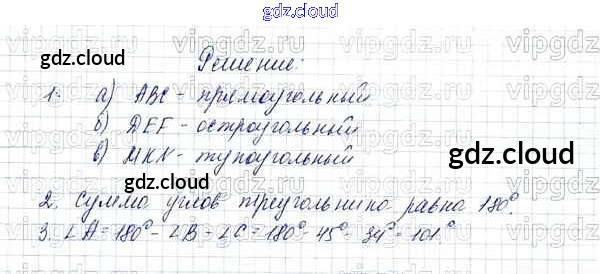 gdz.cloud
vipgdz.ru vipgdz.ru vipgdz.ru
gdz.cloud
Решение:
1. а) ABC - прямоугольный
б) DEF - остроугольный
в) MKN - тупоугольный
gdz.cloud
gdz.cloud
2. Сумма углов треугольника равна 180°.
3. ∠A = 180° - ∠B - ∠C = 180° - 45° - 34° = 101°